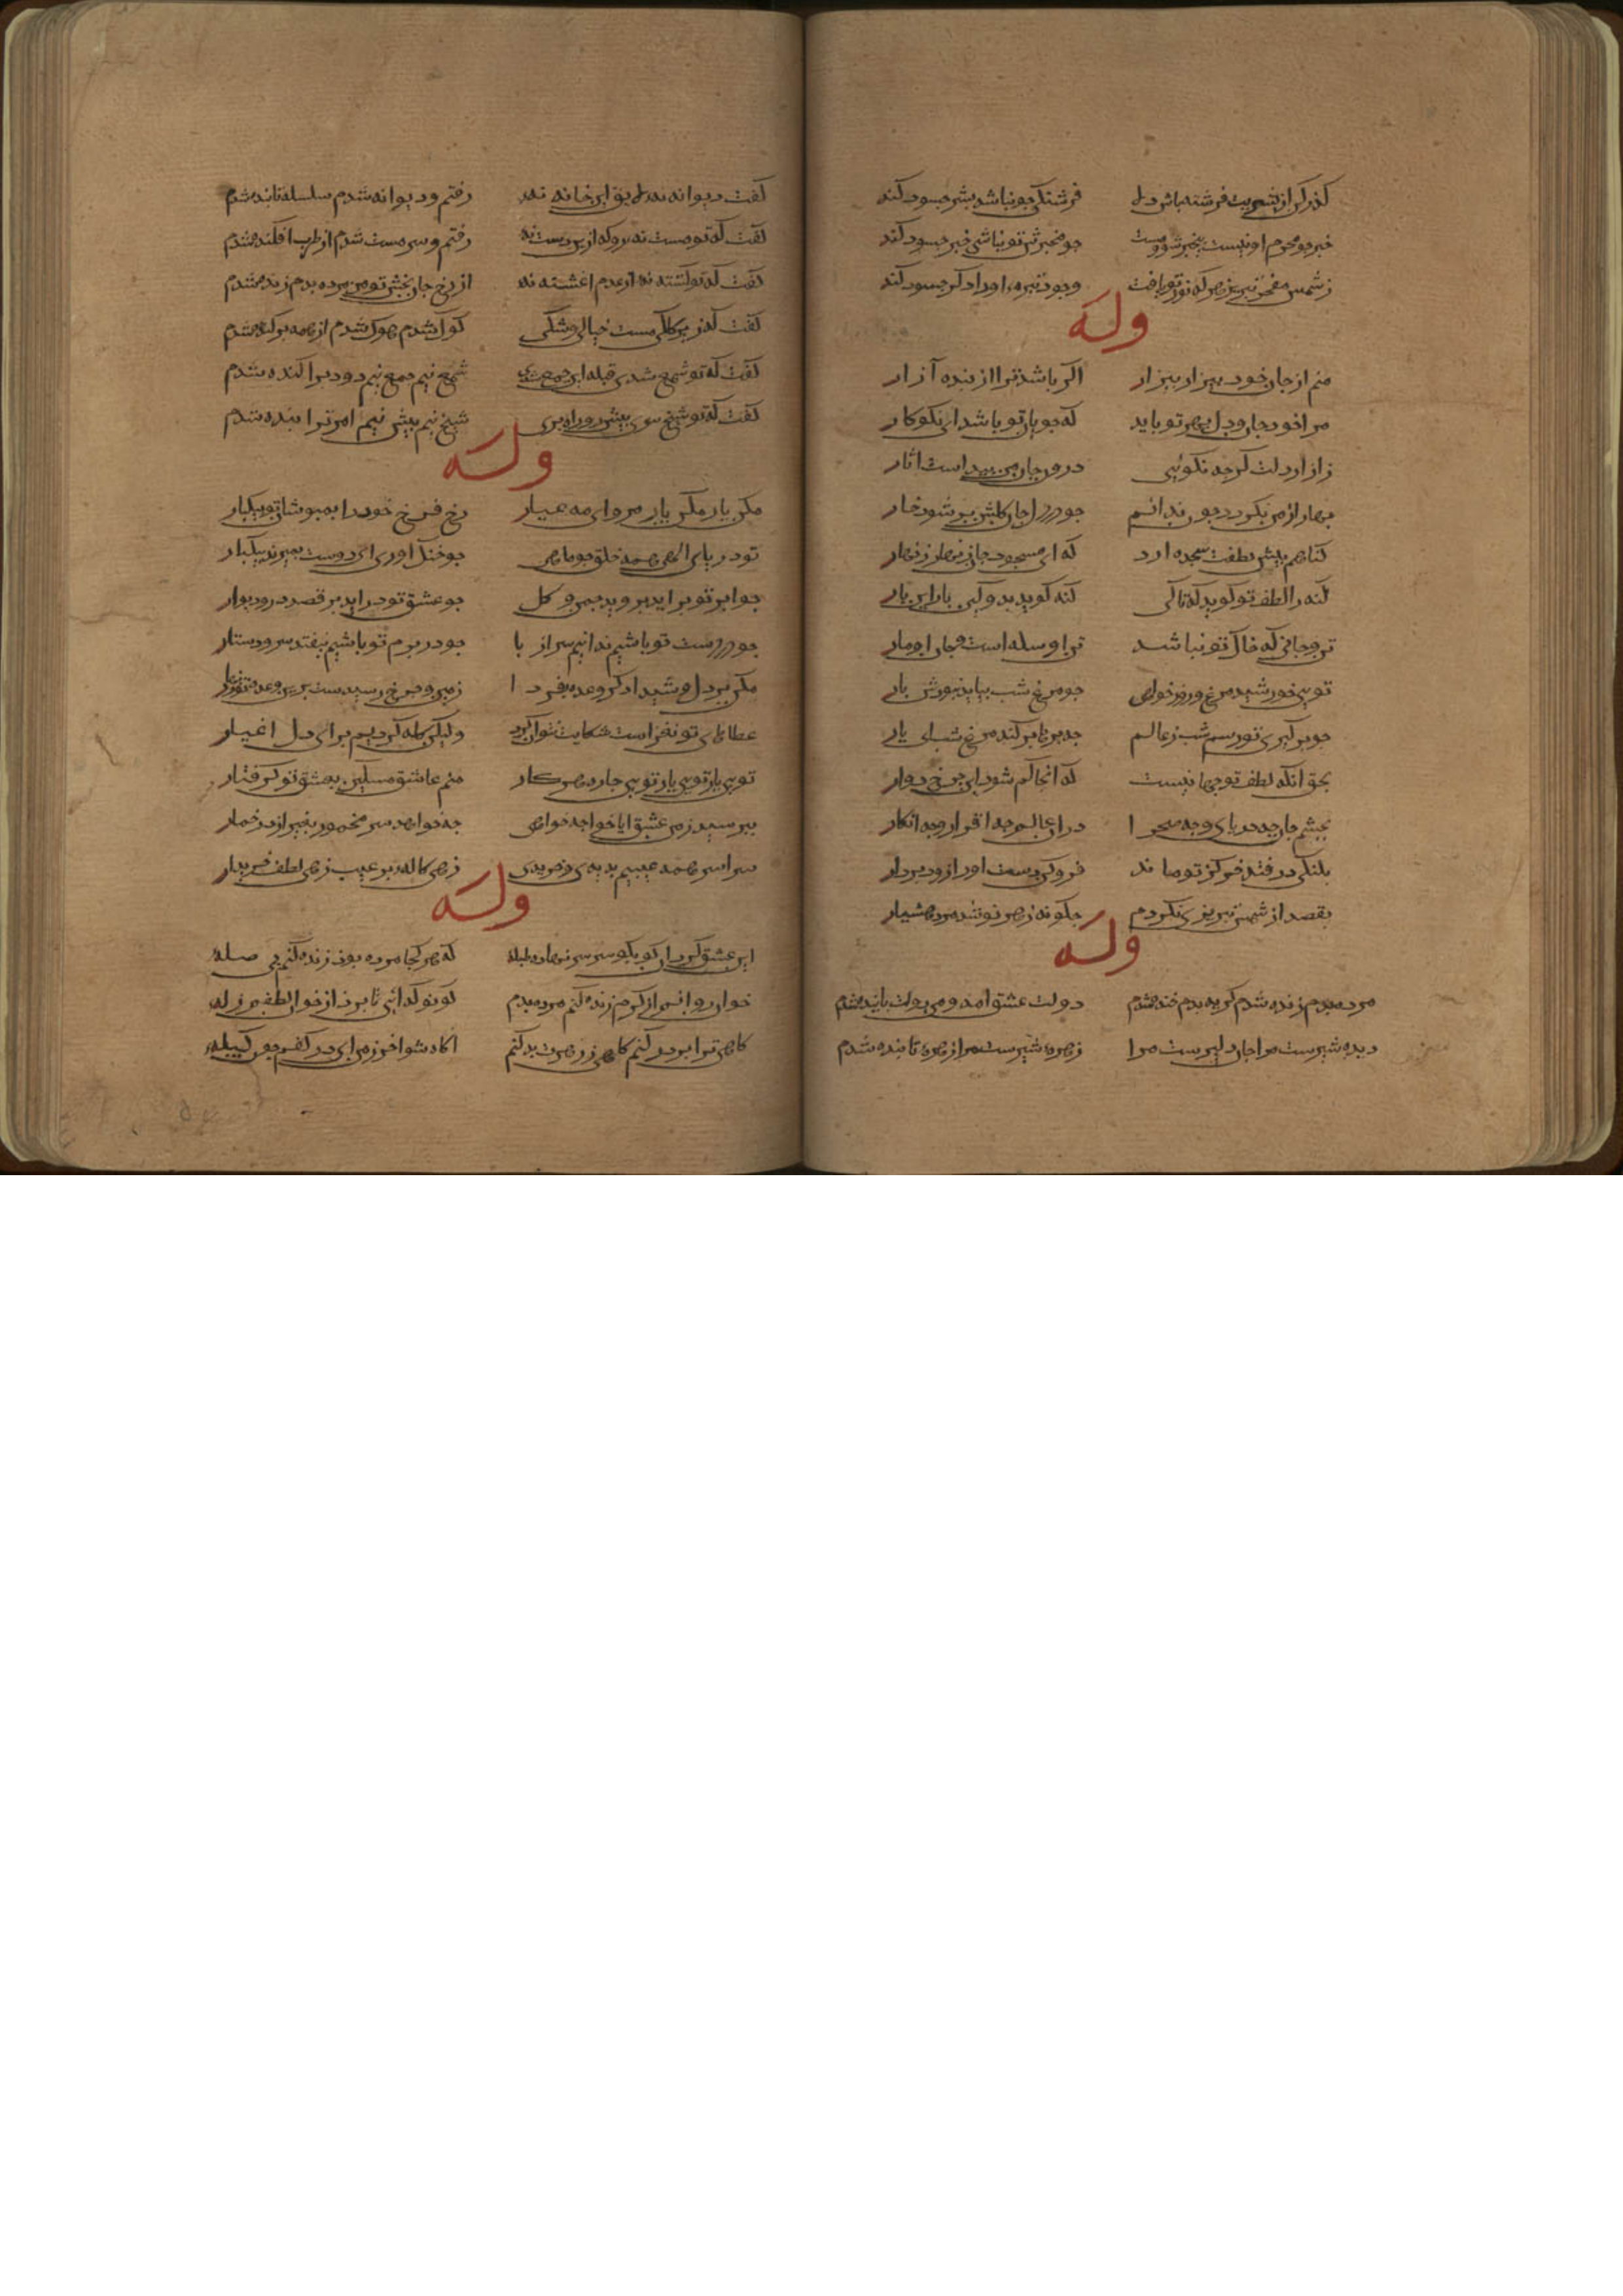 گذر کن از بشریت فرشته باش دلا فرشتگی چو نباشد بشر چه سود کند
خبر چو محرم او نیست بیخبر شو و مست چو مخبرش تو نباشی خبر چه سود کند
ز شمس مفخر تبریز هر که نور نیافت وجود تیره او را دگر چه سود کند
وله
منم از جان خود بیزار بیزار اگر باشد ترا از بنده آزار
مرا خود جان و دل بهر تو باید که جویای تو باشد ای نکوکار
ز آزار دلت گرچه نگوئی درون جان من پیداست آثار
بهار از من بگردد چون ندانم چو در دل جای گلشن پر شود خار
گناهم پیش لطفت سجده آرد که ای مسجود جان زنهار زنهار
گنه را لطف تو گوید که تا کی گنه گوید بدو کین بار این بار
تن و جانی که خاک تو نباشد تن او سله است و جان او مار
تویی خورشید مرغ روز خواهی چو مرغ شب بیاید نبودش بار
چو برگیری تو رسم شب ز عالم چه پرها برکند مرغ شب ای یار
بحق آنکه لطف تو جهانیست که آنجا گم شود این چرخ دوار
بچشم جان چه دریای و چه صحرا در آن عالم چه اقرار و چه انکار
بتنگی درفتد هر کز تو ماند فروکن دست او را زود بردار
بقصد از شمس تبریزی نگردم چگونه زهر نوشد مرد هشیار
وله
مرده بدم زنده شدم گریه بدم خنده شدم دولت عشق آمد و من دولت پاینده شدم
دیده سیرست مرا جان دلیرست مرا زهره شیرست مرا زهره تابنده شدم
گفت دیوانه نه لایق این خانه نه رفتم و دیوانه شدم سلسله بنده شدم
گفت که تو مست نه رو که ازین دست نه رفتم و سرمست شدم از طرب آکنده شدم
گفت که تو کشته نه از عدم آغشته نه از رخ جان بخش تو من مرده بدم زنده شدم
گفت که زیرککی مست خیالی و شکی گول شدم هول شدم از همه برکنده شدم
گفت که تو شمع شدی قبله این جمع شدی شمع نیم جمع نیم دود پراکنده شدم
گفت که تو شیخ سری پیش رو و راه بری شیخ نیم پیش نیم امر ترا بنده شدم
وله
مکن یار مکن یار مرو ای مه عیار رخ فرخ خود را بمپوشان تو بیکبار
تو دریای الهی همه خلق چو ماهی چو خشک آوری ای دوست بمیرند بیکبار
چو ابر تو برآید بروید چمن و گل چو عشق تو درآید برقصد در و دیوار
چو در دست تو باشیم ندانیم سر از پا چو در بزم تو باشیم بیفتد سر و دستار
مگو با دل شیدا دگر وعده فردا زمین و چرخ رسیدست برین وعده
عطاهای تو نغزاست شکایت نتوان کرد ولیکن گله کردیم برای دل اغیار
تویی یار تویی یار تویی چاره هر کار منم عاشق مسکین بعشق تو گرفتار
بپرسید ز من عشق ایا خواجه چه خواهی چه خواهد سر مخمور بغیر از در خمار
سراسر همه عیبیم بدیدی و خریدی زهی کاله پر عیب زهی لطف خریدار
وله
این عشق گردان کو بکو بر سر نهاده طبله که هر کجا مرده بود زنده کنم بی صله
خوان روانم از کرم زنده کنم مرده بدم کو نو گدائی تا برد از خوان لطفم زله
گاهی ترا در بر کنم گاهی ز زهرت پر کنم آگاه شو آخر ز من ای در کفم چون کبیله